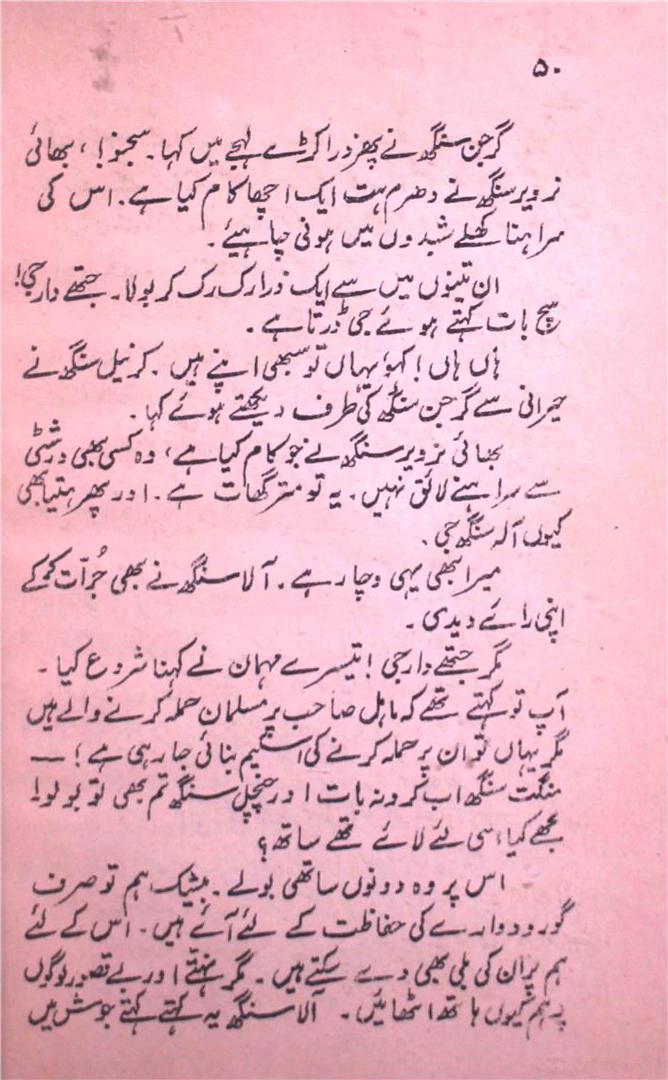 ۵۰
گرجن سنگھ نے پھر ذرا کڑے لہجے میں کہا۔ سجنو!، بھائی
نرویر سنگھ نے دھرم ہت ایک اچھا کام کیا ہے۔ اس کی
سراہنا کھلے شبدوں میں ہونی چاہیئے۔
ان تینوں میں سے ایک ذرا رک رک کر بولا۔ جتھے دار جی!
سچ بات کہتے ہوئے جی ڈرتا ہے۔
ہاں ہاں! کہو یہاں تو سبھی اپنے ہیں۔ کرنیل سنگھ نے
حیرانی سے گرجن سنگھ کی طرف دیکھتے ہوئے کہا۔
بھائی نرویر سنگھ نے جو کام کیا ہے، وہ کسی بھی درشٹی
سے سراہنے لائق نہیں۔ یہ تو متر گھات ہے۔ اور پھر ہتیا بھی
کیوں آلہ سنگھ جی۔
میرا بھی یہی وچار ہے۔ آلا سنگھ نے بھی جُرأت کر کے
اپنی رائے دیدی۔
مگر جتھے دار جی! تیسرے مہمان نے کہنا شروع کیا۔
آپ تو کہتے تھے کہ ماہل صاحب پر مسلمان حملہ کرنے والے ہیں
مگر یہاں تو ان پر حملہ کرنے کی اسکیم بنائی جا رہی ہے! —
منگت سنگھ اب کرو نہ بات اور چنچل سنگھ تم بھی تو بولو!
مجھے کیا اسی لئے لائے تھے ساتھ؟
اس پر وہ دونوں ساتھی بولے۔ بیشک ہم تو صرف
گورودوارے کی حفاظت کے لئے آئے ہیں۔ اس کے لئے
ہم پران کی بلی بھی دے سکتے ہیں۔ مگر نہتے اور بے قصور لوگوں
پر ہم کیوں ہاتھ اٹھائیں۔ آلا سنگھ یہ کہتے کہتے جوش میں